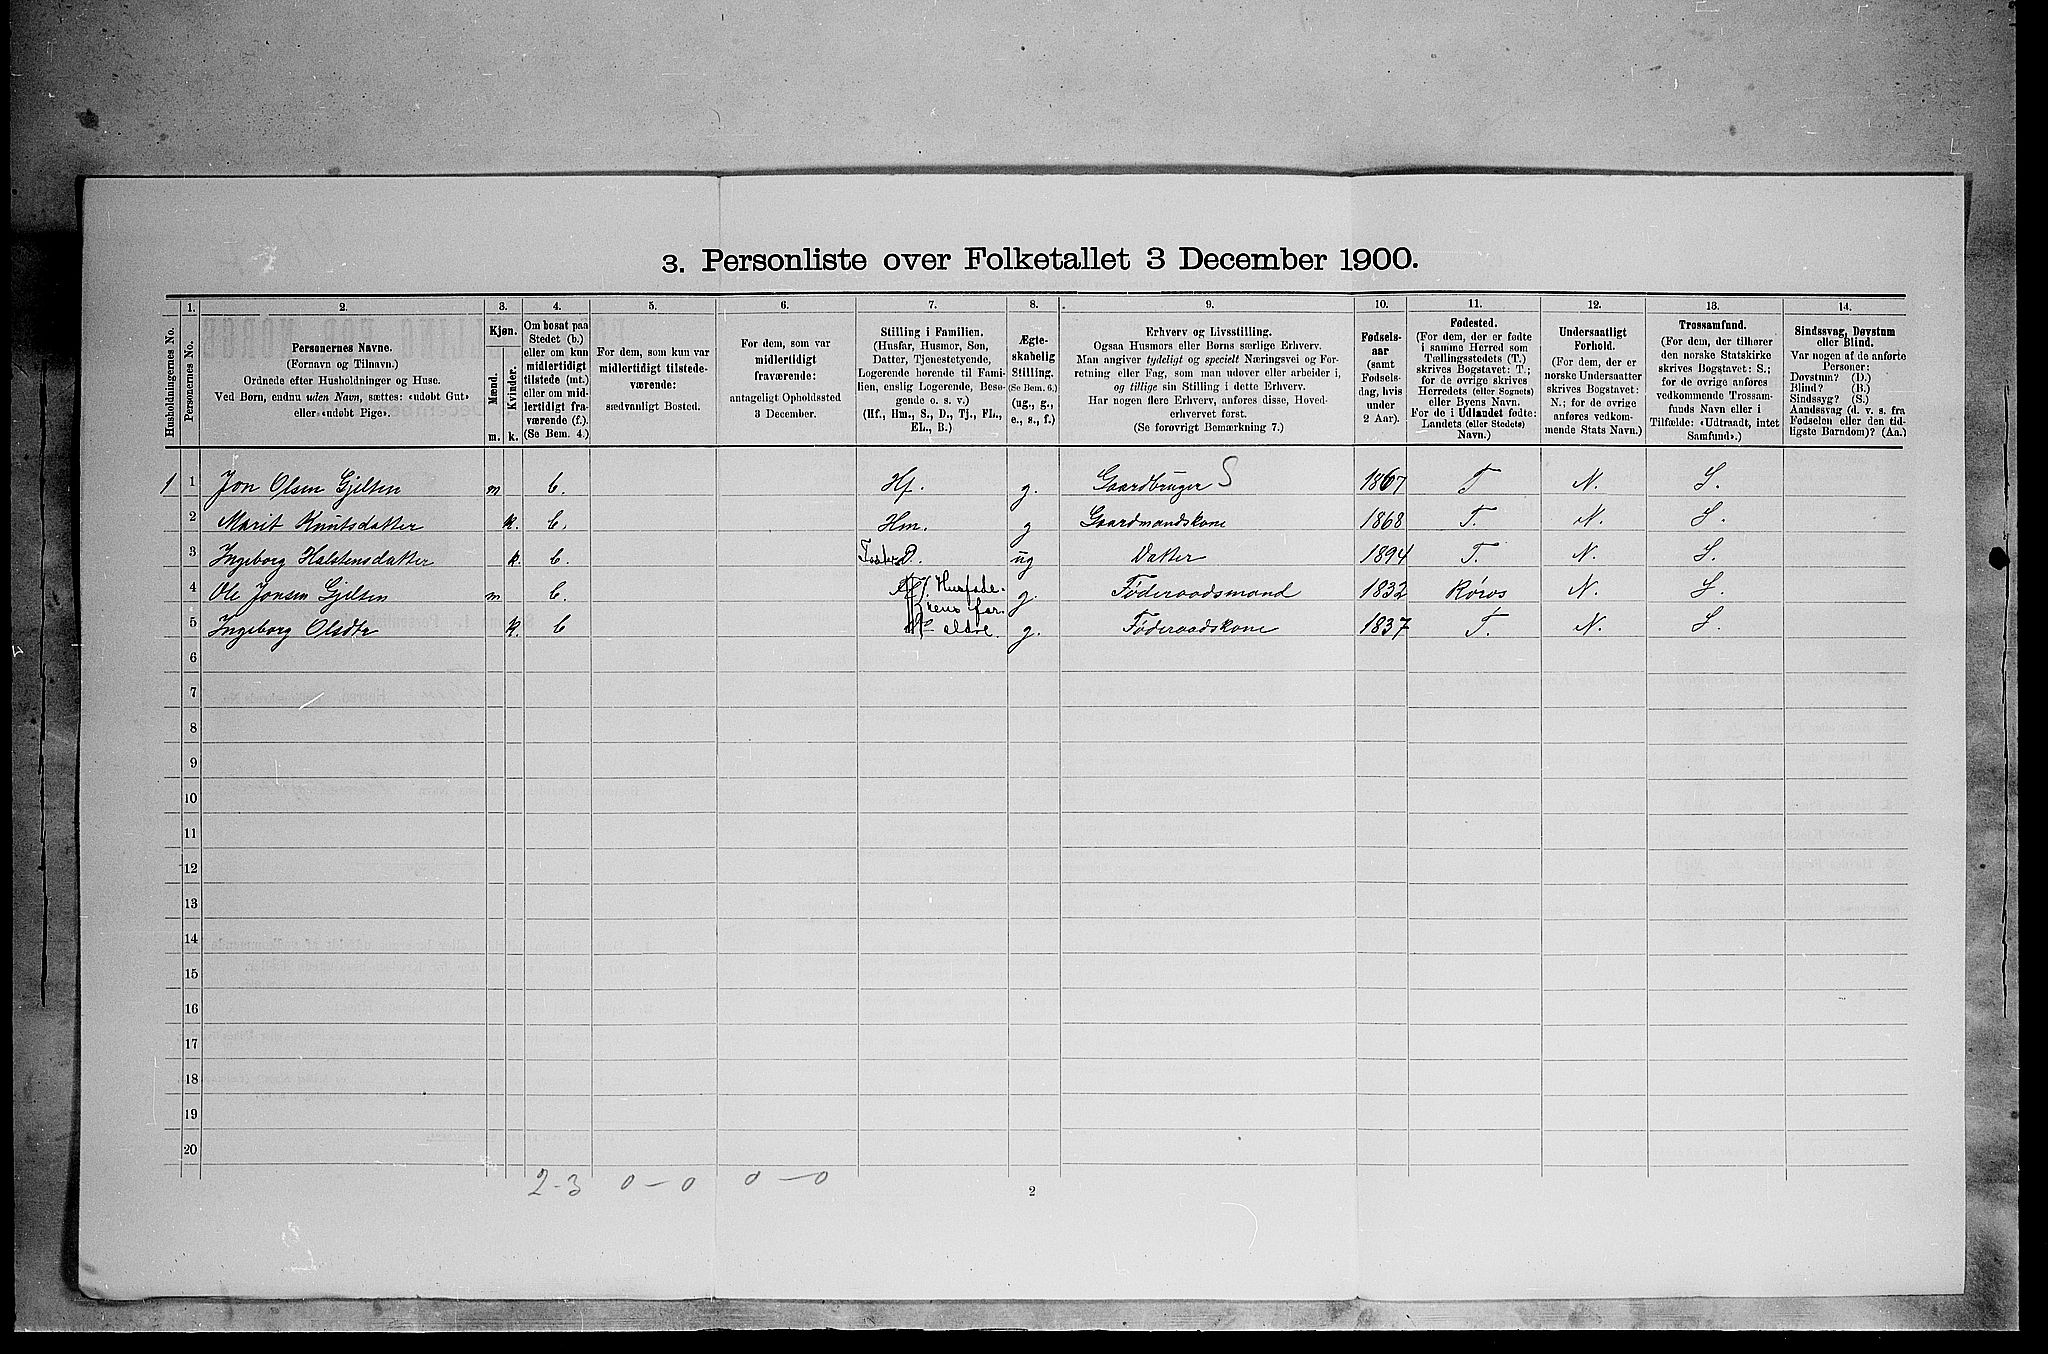 3. Personliste over Folketallet 3 December 1900.
Husholdningernes No.
1.
Personernes No.
2.
Personernes Navne.
(Fornavn og Tilnavn.)
Ordnede efter Husholdninger og Huse.
Ved Børn, endnu uden Navn, sættes: «udøbt Gut»
eller «udøbt Pige».
3.
Kjøn.
Mænd.
Kvinder.
m. k.
4.
Om bosat paa
Stedet (b.)
eller om kun
midlertidigt
tilstede (mt.)
eller om mid-
lertidigt fra-
værende (f.).
(Se Bem. 4.)
5.
For dem, som kun var
midlertidigt tilstede-
værende:
sædvanligt Bosted.
6.
For dem, som var
midlertidigt
fraværende:
antageligt Opholdssted
3 December.
7.
Stilling i Familien.
(Husfar, Husmor, Søn,
Datter, Tjenestetyende,
Logerende hørende til Fami-
lien, enslig Logerende, Besø-
gende o. s. v.)
(Hf., Hm., S., D., Tj., FL.,
EL., B.)
8.
Ægte-
skabelig
Stilling.
(Se Bem. 6.)
(ug., g.,
e., s., f.)
9.
Erhverv og Livsstilling.
Ogsaa Husmors eller Børns særlige Erhverv.
Man angiver tydeligt og specielt Næringsvei og For-
retning eller Fag, som man udøver eller arbeider i,
og tillige sin Stilling i dette Erhverv.
Har nogen flere Erhverv, anføres disse, Hoved-
erhvervet først.
(Se forøvrigt Bemærkning 7.)
10.
Fødsels-
aar
(samt
Fødsels-
dag, hvis
under
2 Aar).
11.
Fødested.
(For dem, der er fødte
i samme Herred som
Tællingsstedets (T.)
skrives Bogstavet: T.;
for de øvrige skrives
Herredets (eller Sognets)
eller Byens Navn.
For de i Udlandet fødte:
Landets (eller Stedets)
Navn.)
12.
Undersaatligt
Forhold.
(For dem, der er
norske Undersaatter
skrives Bogstavet:
N.; for de øvrige
anføres vedkom-
mende Stats Navn.)
13.
Trossamfund.
(For dem, der tilhører
den norske Statskirke
skrives Bogstavet: S.;
for de øvrige anføres
vedkommende Trossam-
funds Navn eller i
Tilfælde: «Udtraadt, intet
Samfund».)
14.
Sindssvag, Døvstum
eller Blind.
Var nogen af de anførte
Personer:
Døvstum? (D.)
Blind? (B.)
Sindssyg? (S.)
Aandssvag (d. v. s. fra
Fødselen eller den tid-
ligste Barndom)? (Aa.)
1 1 Jon Olsen Gjelten m b. Hf. g. Gaardbruger S 1867 T N. S.
2 Marit Knutsdatter k. b. Hm. g Gaardmandskone 1868 T. N. S.
3 Ingeborg Halstensdatter k. b. D. ug Datter 1894 T. N. S.
4 Ole Jonsen Gjelten m b. Husfade- g. Føderaadsmand 1832 Røros N. S.
rens for-
5 Ingeborg Olsdtr k. b ældre. g. Føderaadskone 1837 T. N. S.
6
7
8
9
10
11
12
13
14
15
16
17
18
19
20
2-3 0-0 0-0
2